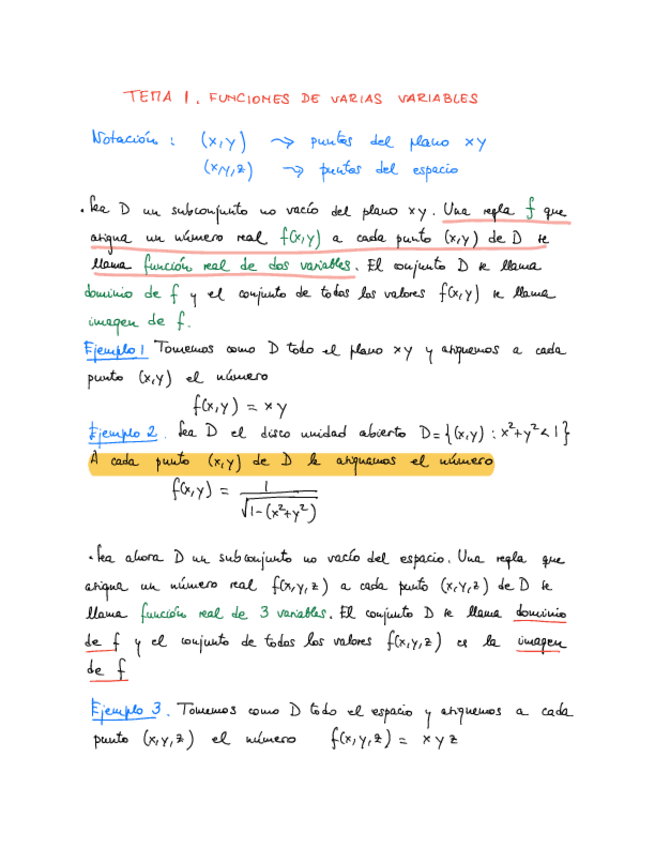 TEMA 1. FUNCIONES DE VARIAS VARIABLES
Notación : (x,y) → puntos del plano xy
(x,y,z) → puntos del espacio
• Sea D un subconjunto no vacío del plano xy. Una regla f que
asigna un número real f(x,y) a cada punto (x,y) de D se
llama función real de dos variables. El conjunto D se llama
dominio de f y el conjunto de todos los valores f(x,y) se llama
imagen de f.
Ejemplo 1 Tomemos como D todo el plano xy y asignemos a cada
punto (x,y) el número
f(x,y) = xy
Ejemplo 2. Sea D el disco unidad abierto D={(x,y) : x²+y²<1}
A cada punto (x,y) de D le asignamos el número
f(x,y) = 1/√(1-(x²+y²))
• Sea ahora D un subconjunto no vacío del espacio. Una regla que
asigna un número real f(x,y,z) a cada punto (x,y,z) de D se
llama función real de 3 variables. El conjunto D se llama dominio
de f y el conjunto de todos los valores f(x,y,z) es la imagen
de f
Ejemplo 3. Tomemos como D todo el espacio y asignemos a cada
punto (x,y,z) el número f(x,y,z) = xyz